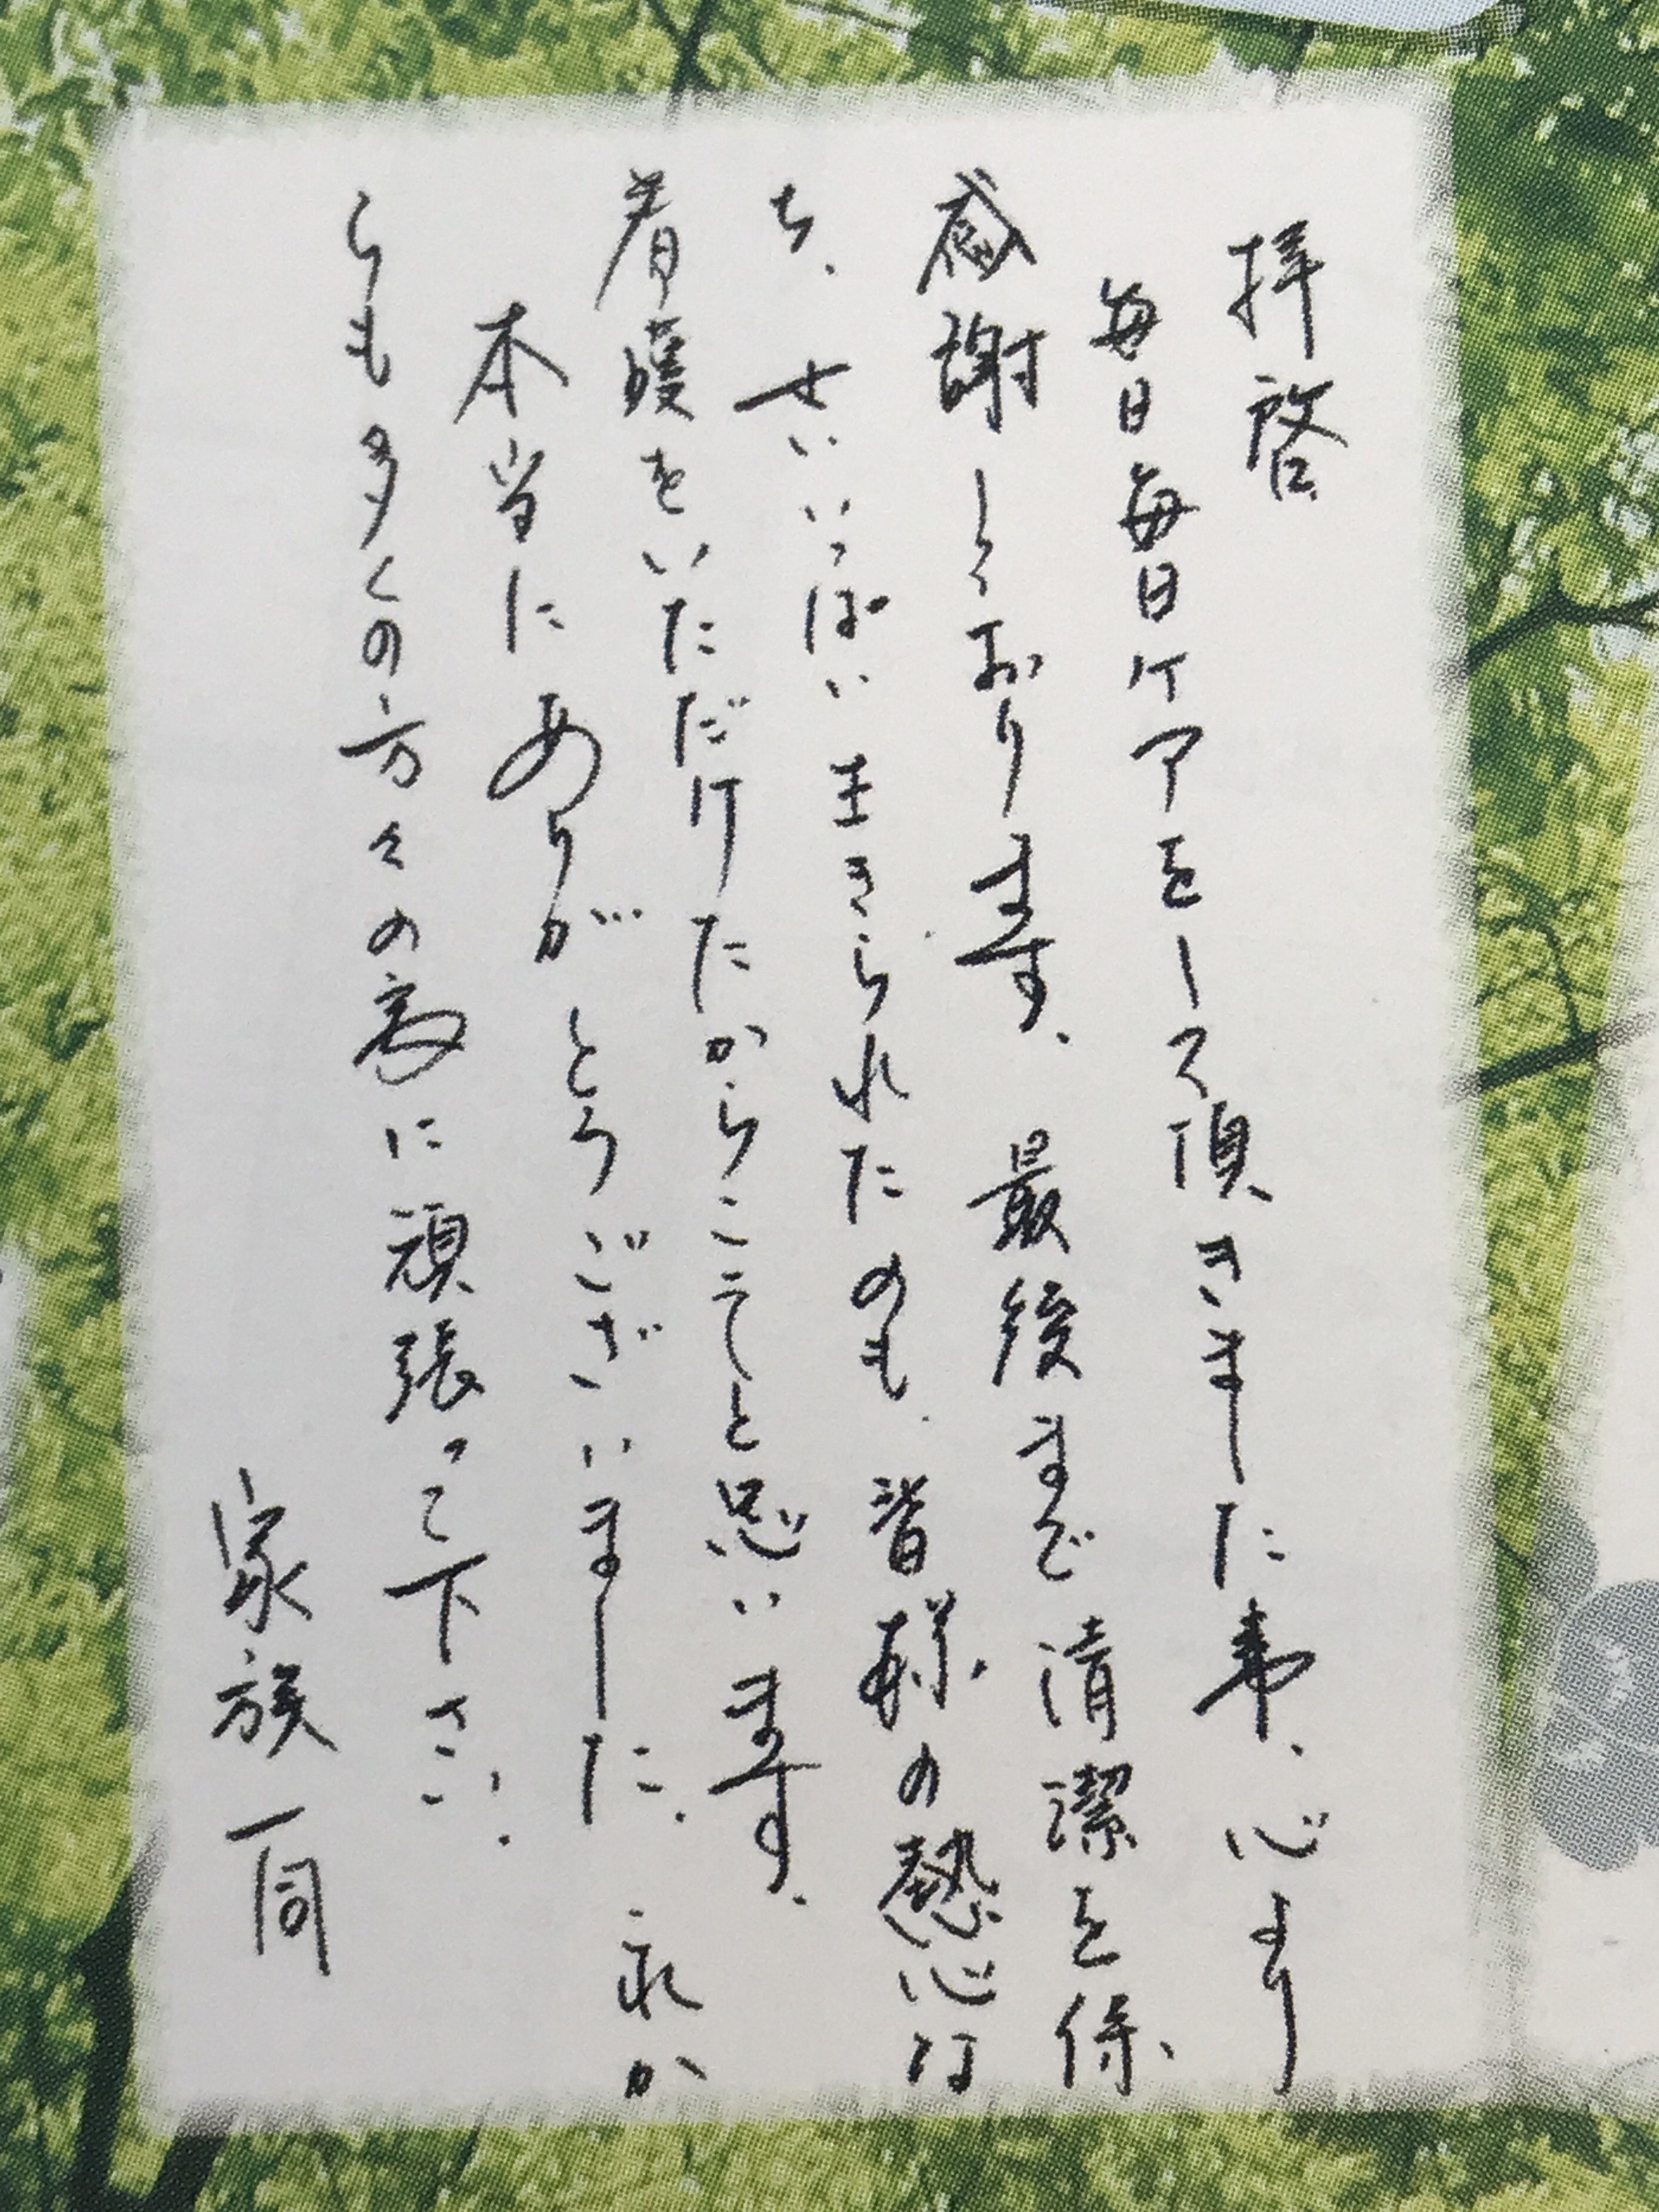 拝啓
毎日毎日ケアをして頂きました事、心より
感謝しております。最後まで清潔を保
ち、せいいっぱい生きられたのも、皆様の熱心な
看護をいただけたからこそと思います。
本当にありがとうございました。これか
らも多くの方々の為に頑張って下さい。
家族一同